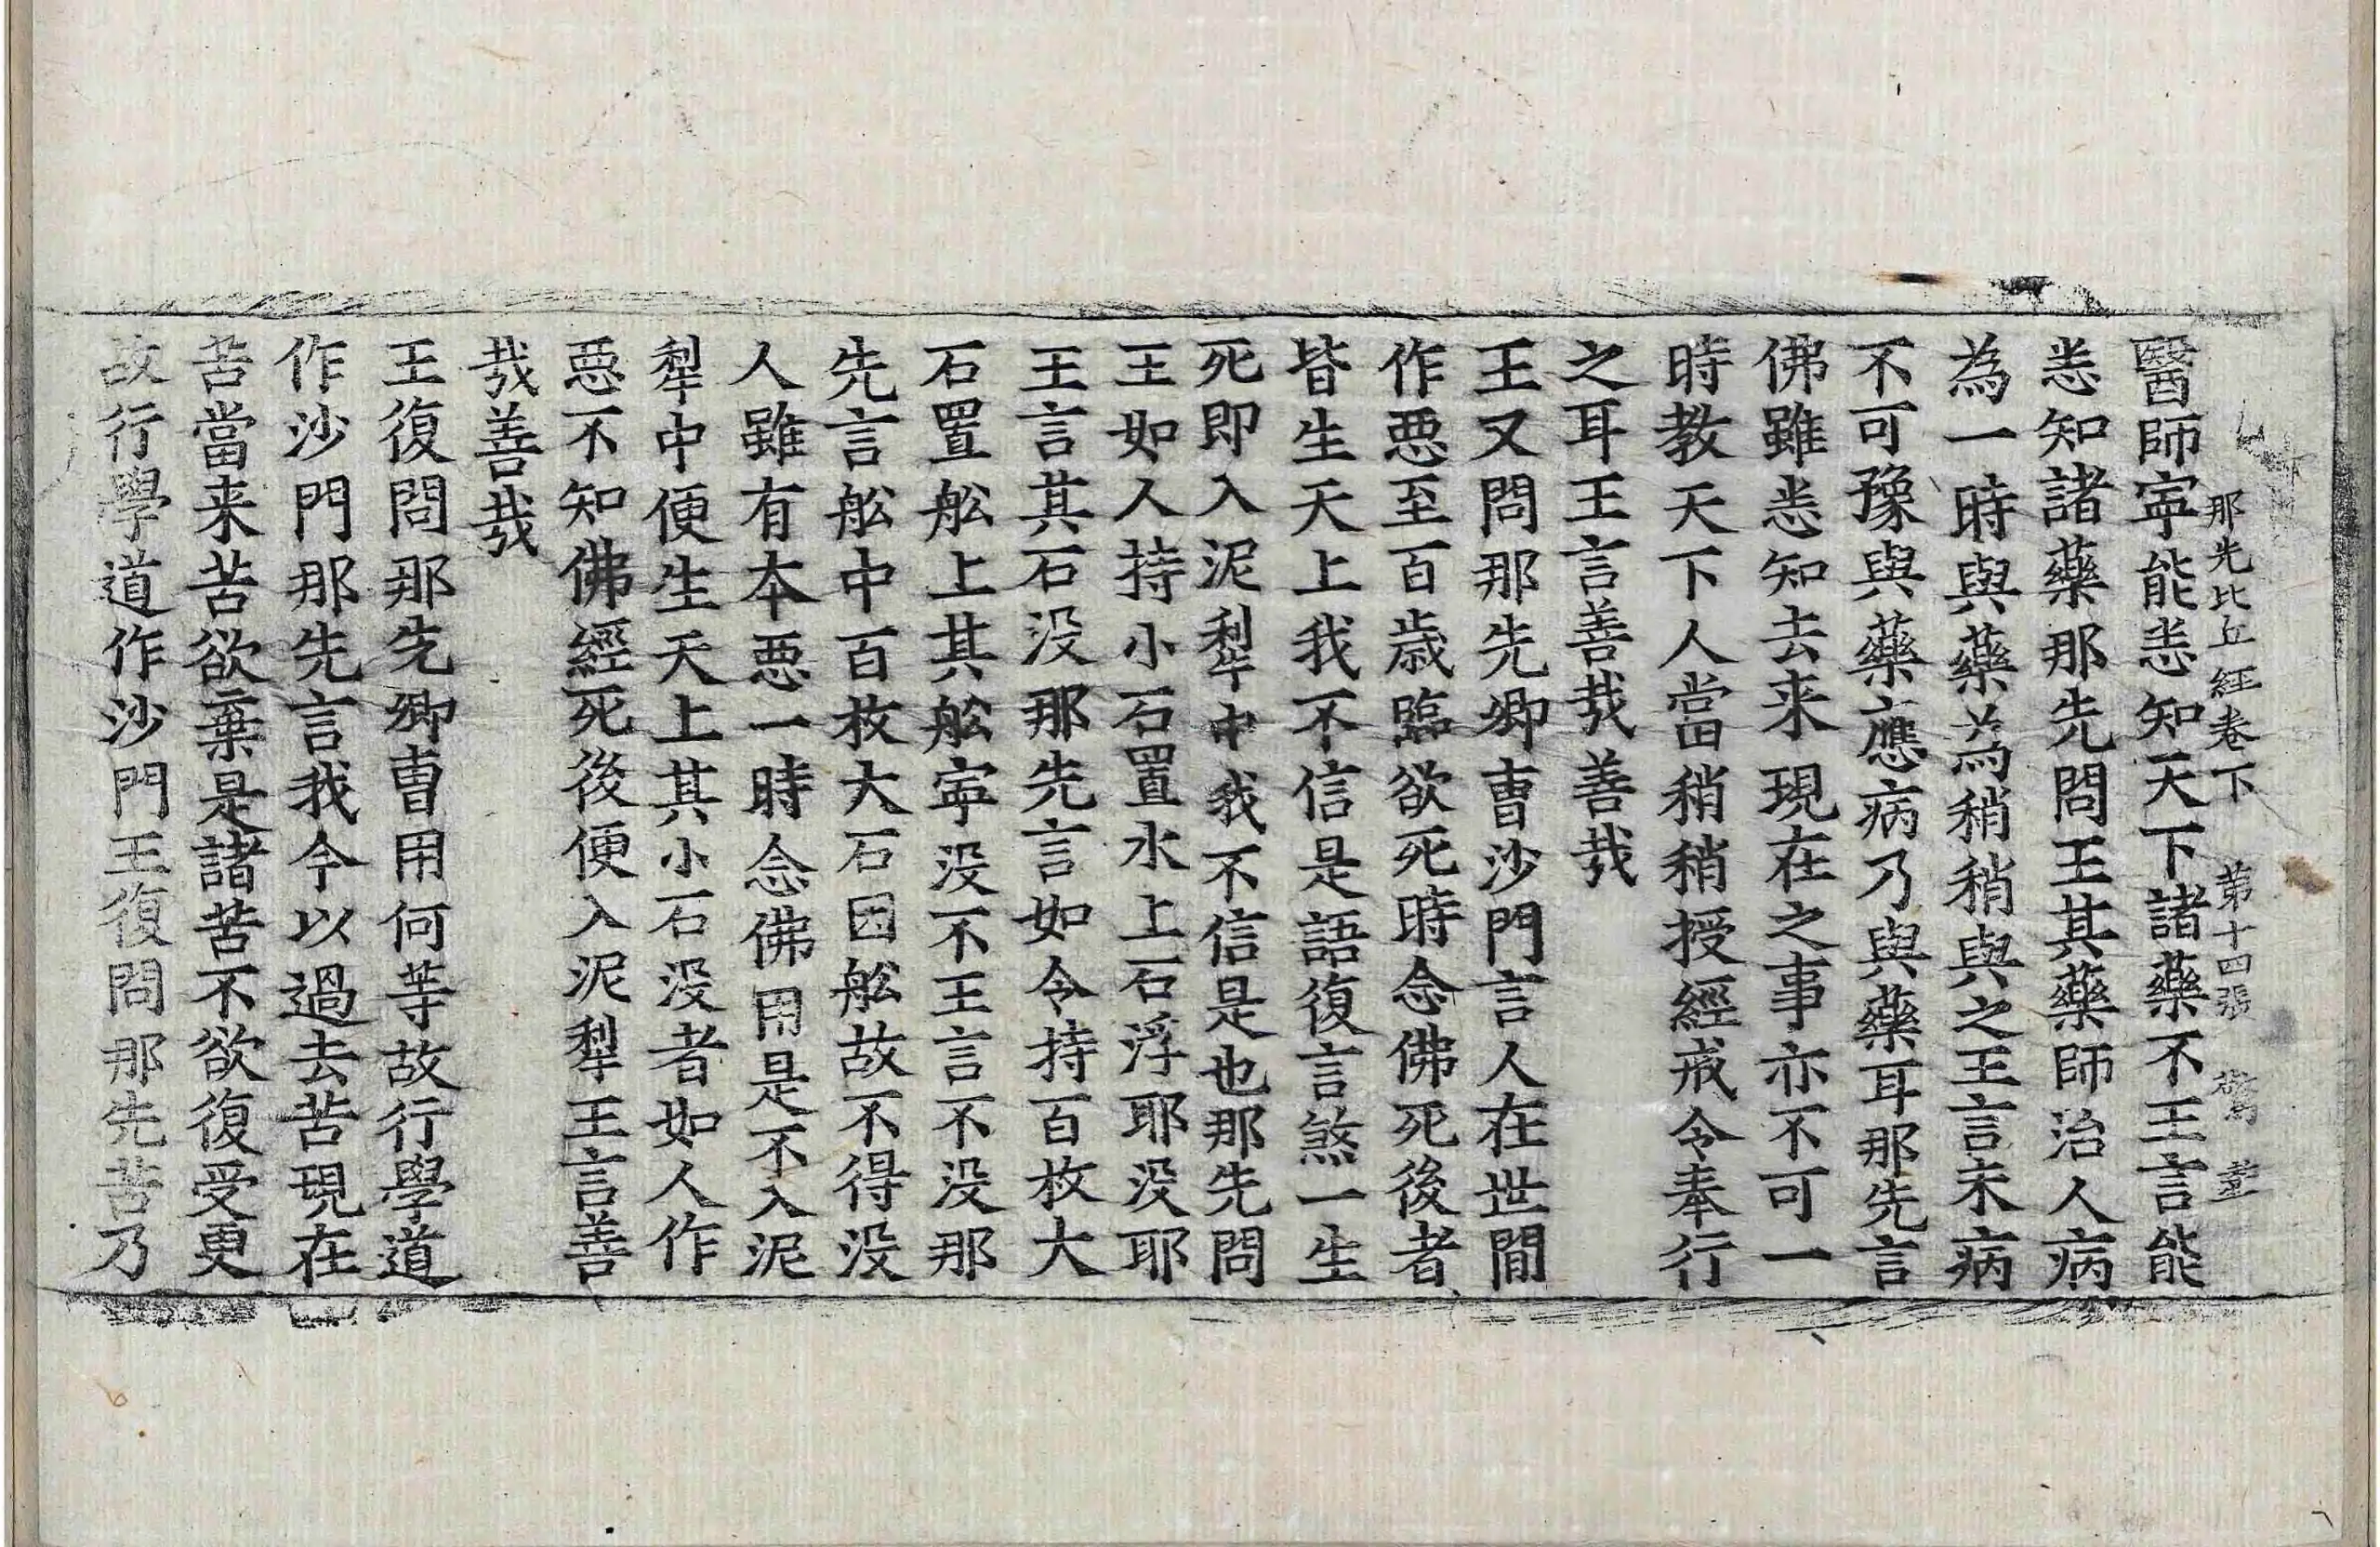 那先比丘經卷下 第十四張 驚
醫師寧能悉知天下諸藥不王言能
悉知諸藥那先問王其藥師治人病
為一時與藥為稍稍與之王言未病
不可豫與藥應病乃與藥耳那先言
佛雖悉知去来現在之事亦不可一
時教天下人當稍稍授經戒令奉行
之耳王言善哉善哉
王又問那先卿曺沙門言人在世閒
作惡至百歲臨欲死時念佛死後者
皆生天上我不信是語復言煞一生
死即入泥犁中我不信是也那先問
王如人持小石置水上石浮耶没耶
王言其石没那先言如令持百枚大
石置舩上其舩寧没不王言不没那
先言舩中百枚大石因舩故不得没
人雖有本惡一時念佛用是不入泥
犁中便生天上其小石没者如人作
惡不知佛經死後便入泥犁王言善
哉善哉
王復問那先卿曺用何等故行學道
作沙門那先言我今以過去苦現在
苦當来苦欲棄是諸苦不欲復受更
故行學道作沙門王復問那先苦乃